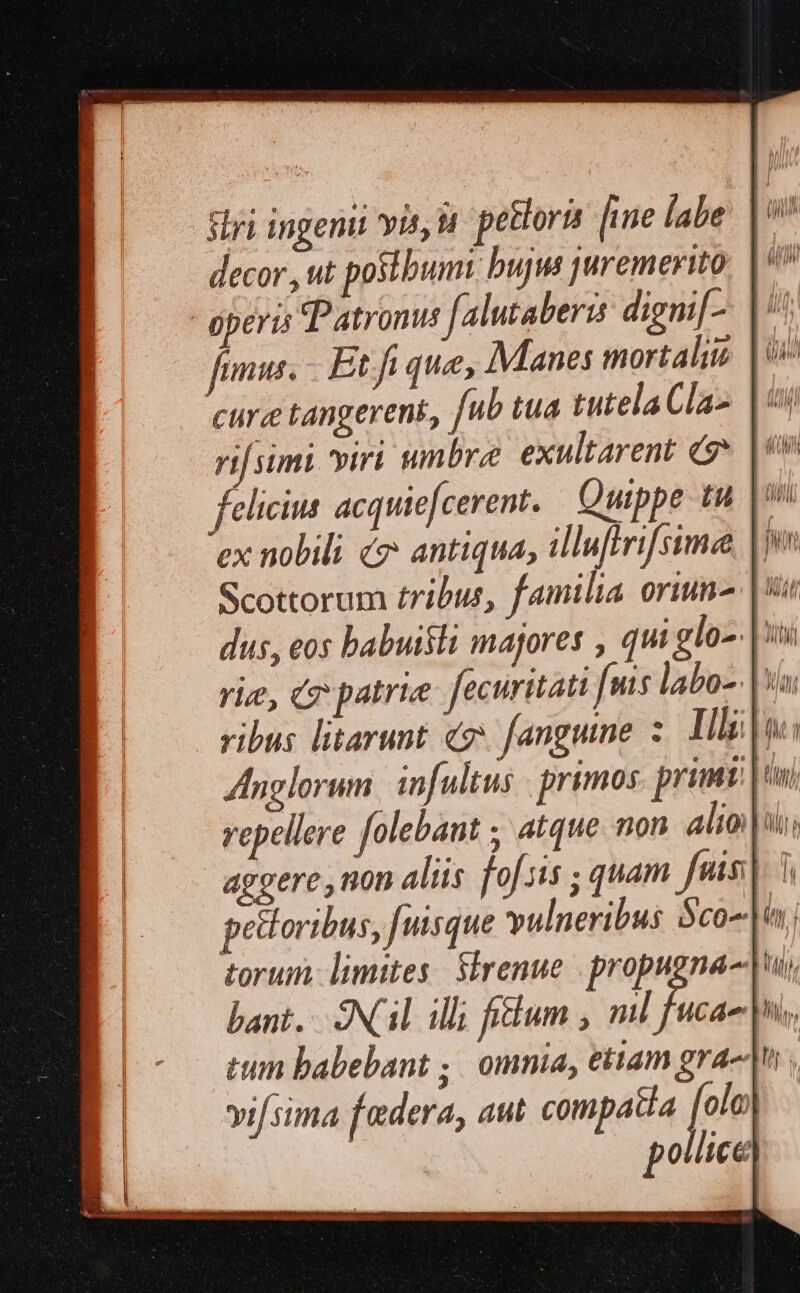 ſtri ingenii vis, & pectoris ſine labe
decor, ut poſthumi hujus jure merito
operis Patronus ſalutaberis digniſ-
ſimus. Et ſi quæ, Manes mortaliũ
curæ tangerent, ſub tua tutela Cla-
riſsimi viri umbræ exultarent &
felicius acquieſcerent. Quippe tu
ex nobili & antiqua, illuſtriſsimæ
Scottorum tribus, familia oriun-
dus, eos habuiſti majores, qui glo-
riæ, & patriæ ſecuritati ſuis labo-
ribus litarunt & ſanguine : Illi
Anglorum inſultus primos primi
repellere ſolebant ; atque non alio
aggere, non aliis foſsis ; quam ſuis
pectoribus, ſuisque vulneribus Sco-
torum limites ſtrenue propugna-
bant. Nil illi fictum, nil fuca-
tum habebant ; omnia, etiam gra-
viſsima fœdera, aut compacta ſolo
pollice